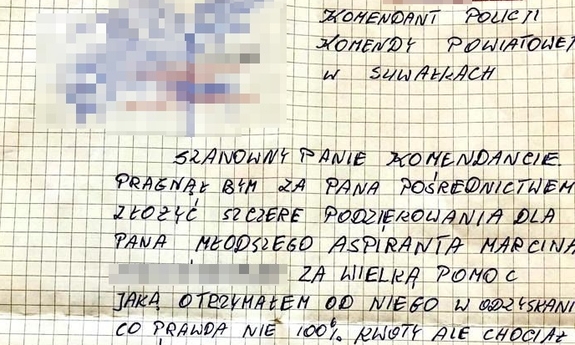 KOMENDANT POLICJI
KOMENDY POWIATOWEJ
W SUWAŁKACH
SZANOWNY PANIE KOMENDANCIE.
PRAGNĄŁ BYM ZA PANA POŚREDNICTWEM
ZŁOŻYĆ SZCZERE PODZIĘKOWANIA DLA
PANA MŁODSZEGO ASPIRANTA MARCINA
ZA WIELKĄ POMOC
JAKĄ OTRZYMAŁEM OD NIEGO W ODZYSKANI
CO PRAWDA NIE 100% KWOTY ALE CHOCIAŻ